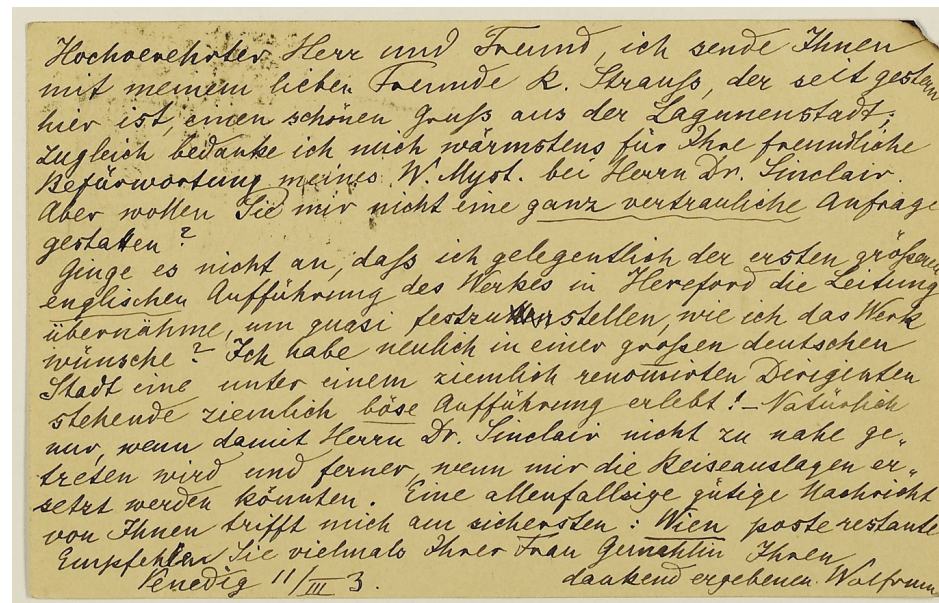 Hochverehrter Herr und Freund, ich sende Ihnen
mit meinem lieben Freunde R. Strauß, der seit gestern
hier ist, einen schönen Gruß aus der Lagunenstadt;
zugleich bedanke ich mich wärmstens für Ihre freundliche
Befürwortung meines W. Myst. bei Herrn Dr. Sinclair.
Aber wollen Sie mir nicht eine ganz vertrauliche Anfrage
gestatten?
Ginge es nicht an, daß ich gelegentlich der ersten größeren
englischen Aufführung des Werkes in Hereford die Leitung
übernähme, um quasi festzustellen, wie ich das Werk
wünsche? Ich habe neulich in einer großen deutschen
Stadt eine unter einem ziemlich renomirten Dirigenten
stehende ziemlich böse Aufführung erlebt! – Natürlich
nur, wenn damit Herrn Dr. Sinclair nicht zu nahe ge„
treten wird und ferner, wenn mir die Reiseauslagen er„
setzt werden könnten. Eine allenfallsige gütige Nachricht
von Ihnen trifft mich am sichersten: Wien poste restante
Empfehlen Sie vielmals Ihrer Frau Gemahlin Ihren
Venedig 11/III 3. dankend ergebenen Wolfrum